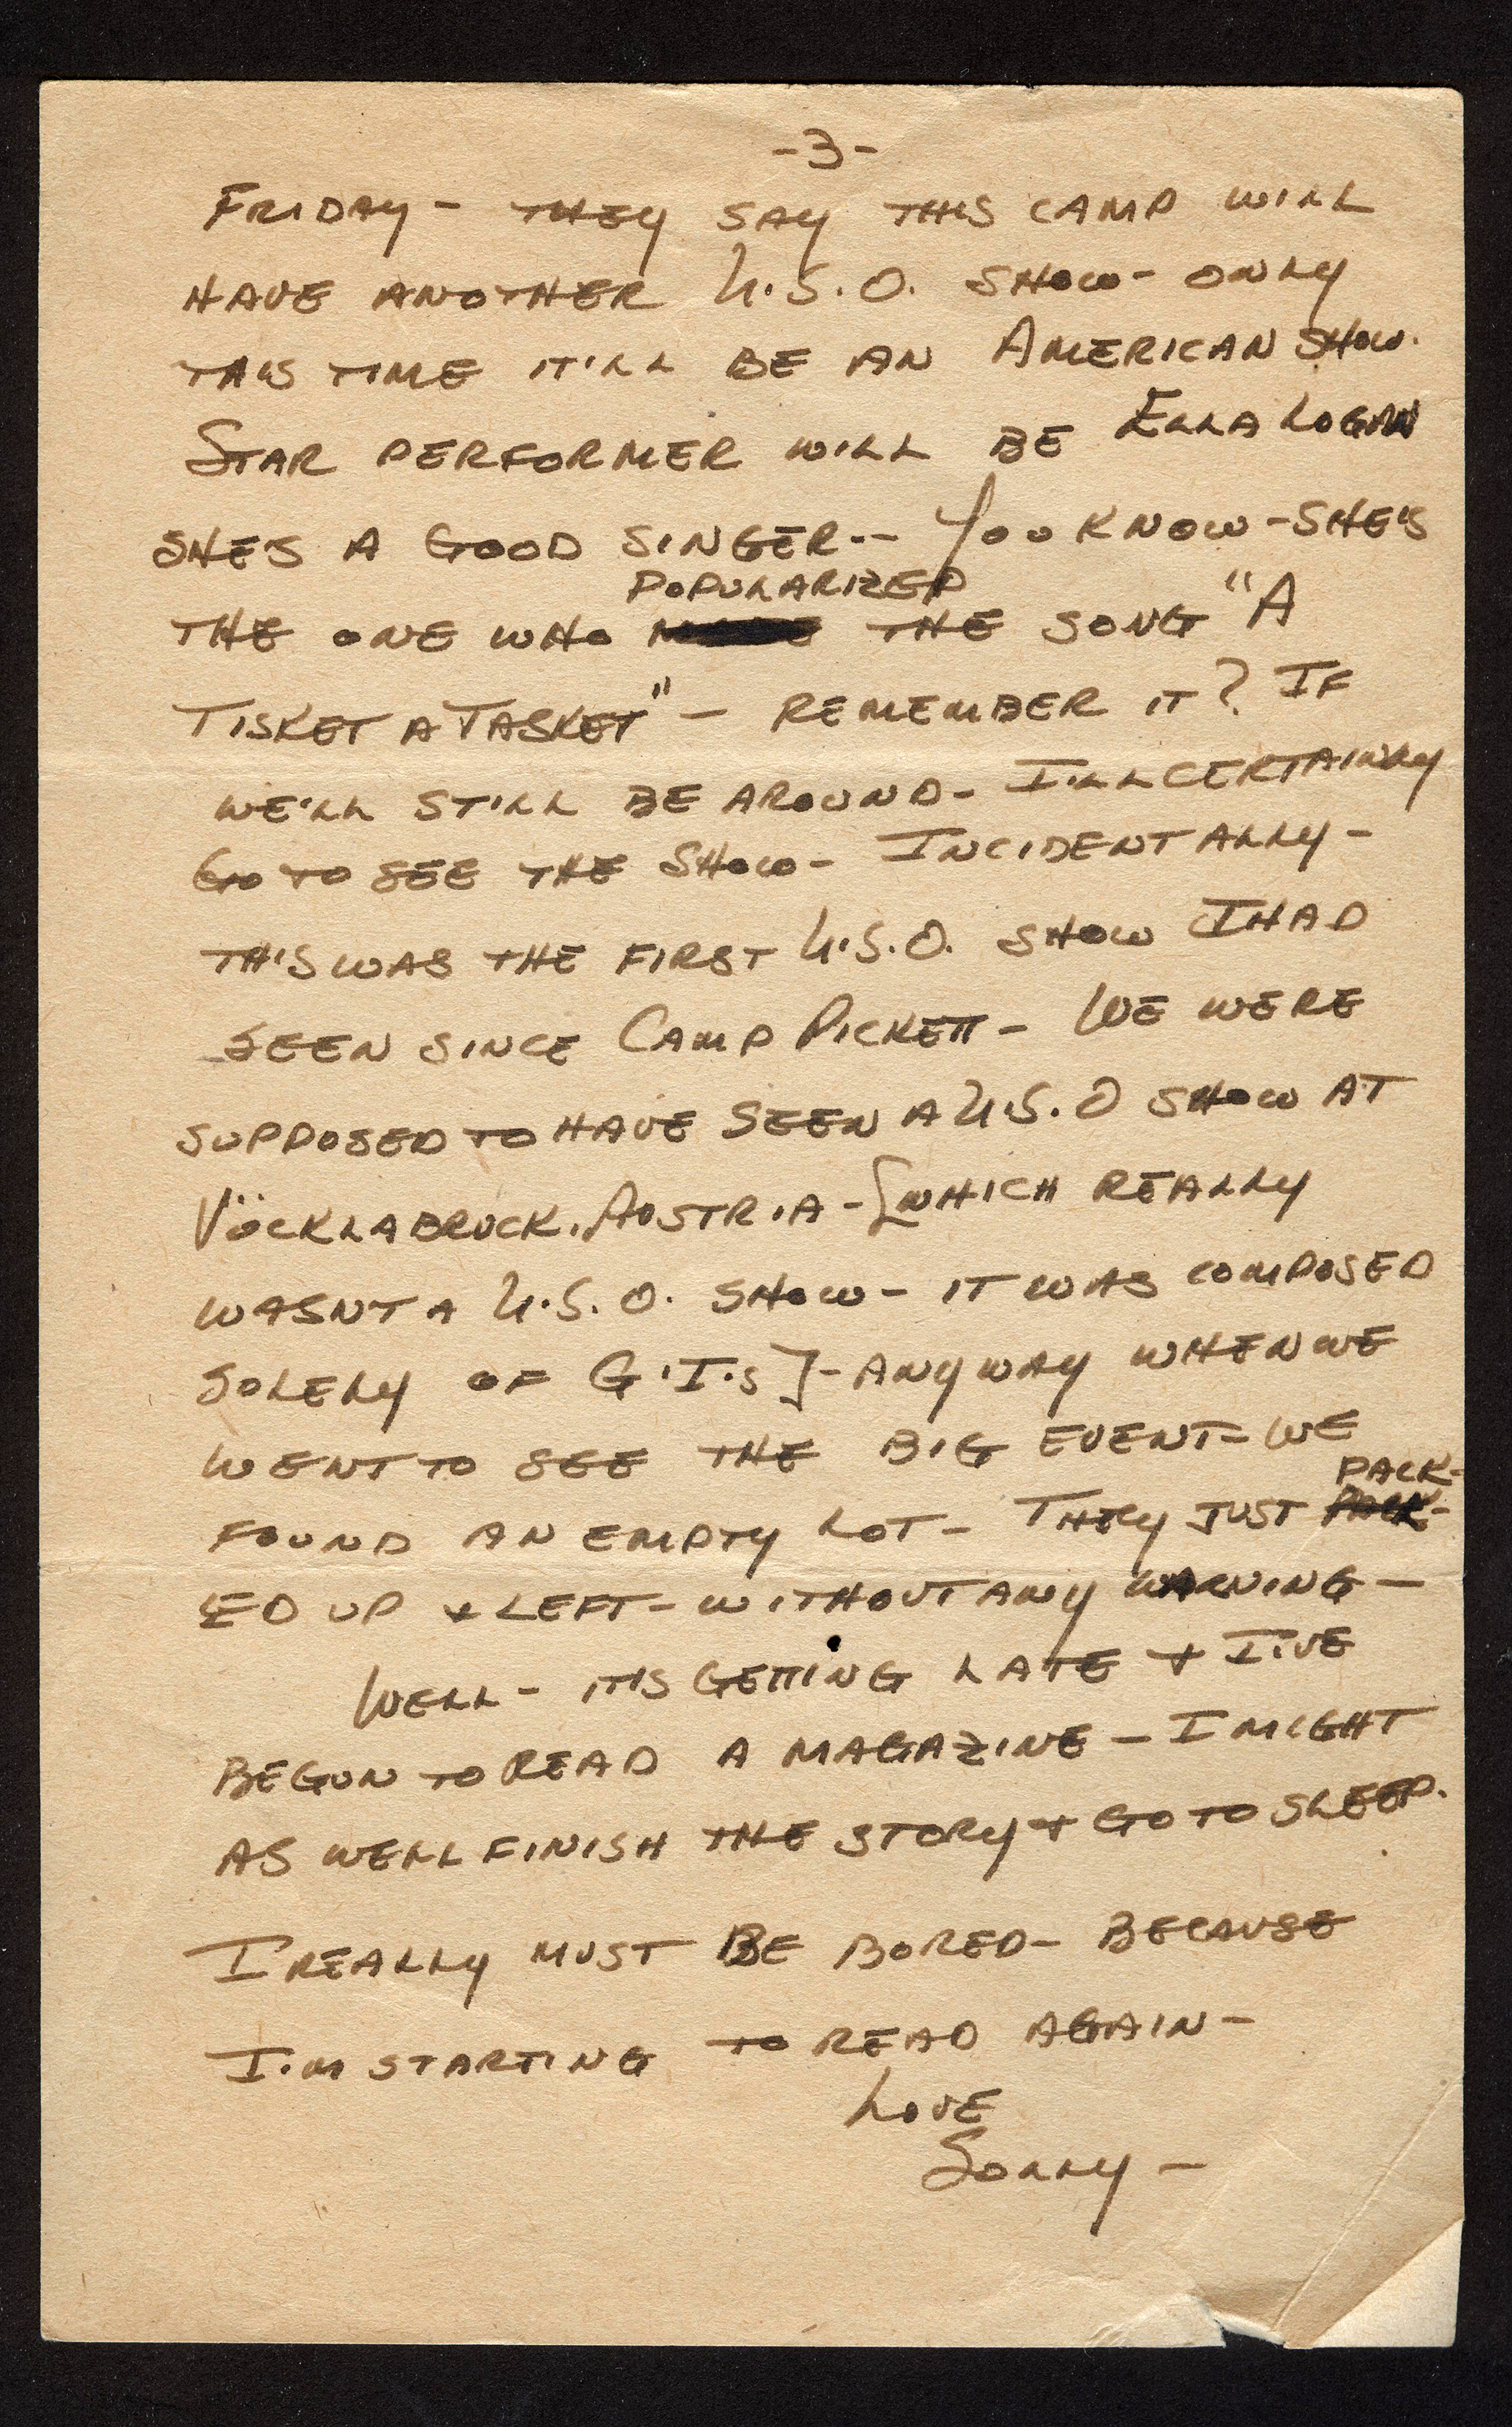 -3-
FRIDAY - THEY SAY THIS CAMP WILL
HAVE ANOTHER U.S.O. SHOW - ONLY
THIS TIME IT'LL BE AN AMERICAN SHOW.
STAR PERFORMER WILL BE ELLA LOGAN
SHE'S A GOOD SINGER -- YOU KNOW - SHE'S
POPULARIZED
THE ONE WHO THE SONG "A
TISKET A TASKET" - REMEMBER IT? IF
WE'LL STILL BE AROUND - I'LL CERTAINLY
GO TO SEE THE SHOW - INCIDENTALLY -
THIS WAS THE FIRST U.S.O. SHOW I HAD
SEEN SINCE CAMP PICKETT - WE WERE
SUPPOSED TO HAVE SEEN A U.S.O SHOW AT
VÖCKLABRUCK, AUSTRIA - [WHICH REALLY
WASN'T A U.S.O. SHOW - IT WAS COMPOSED
SOLELY OF G.I.s] - ANYWAY WHEN WE
WENT TO SEE THE BIG EVENT - WE
PACK-
FOUND AN EMPTY LOT - THEY JUST PACK-
ED UP & LEFT - WITHOUT ANY WARNING -
WELL - IT'S GETTING LATE & I'VE
BEGUN TO READ A MAGAZINE - I MIGHT
AS WELL FINISH THE STORY & GO TO SLEEP.
I REALLY MUST BE BORED - BECAUSE
I'M STARTING TO READ AGAIN -
LOVE
SOLLY -